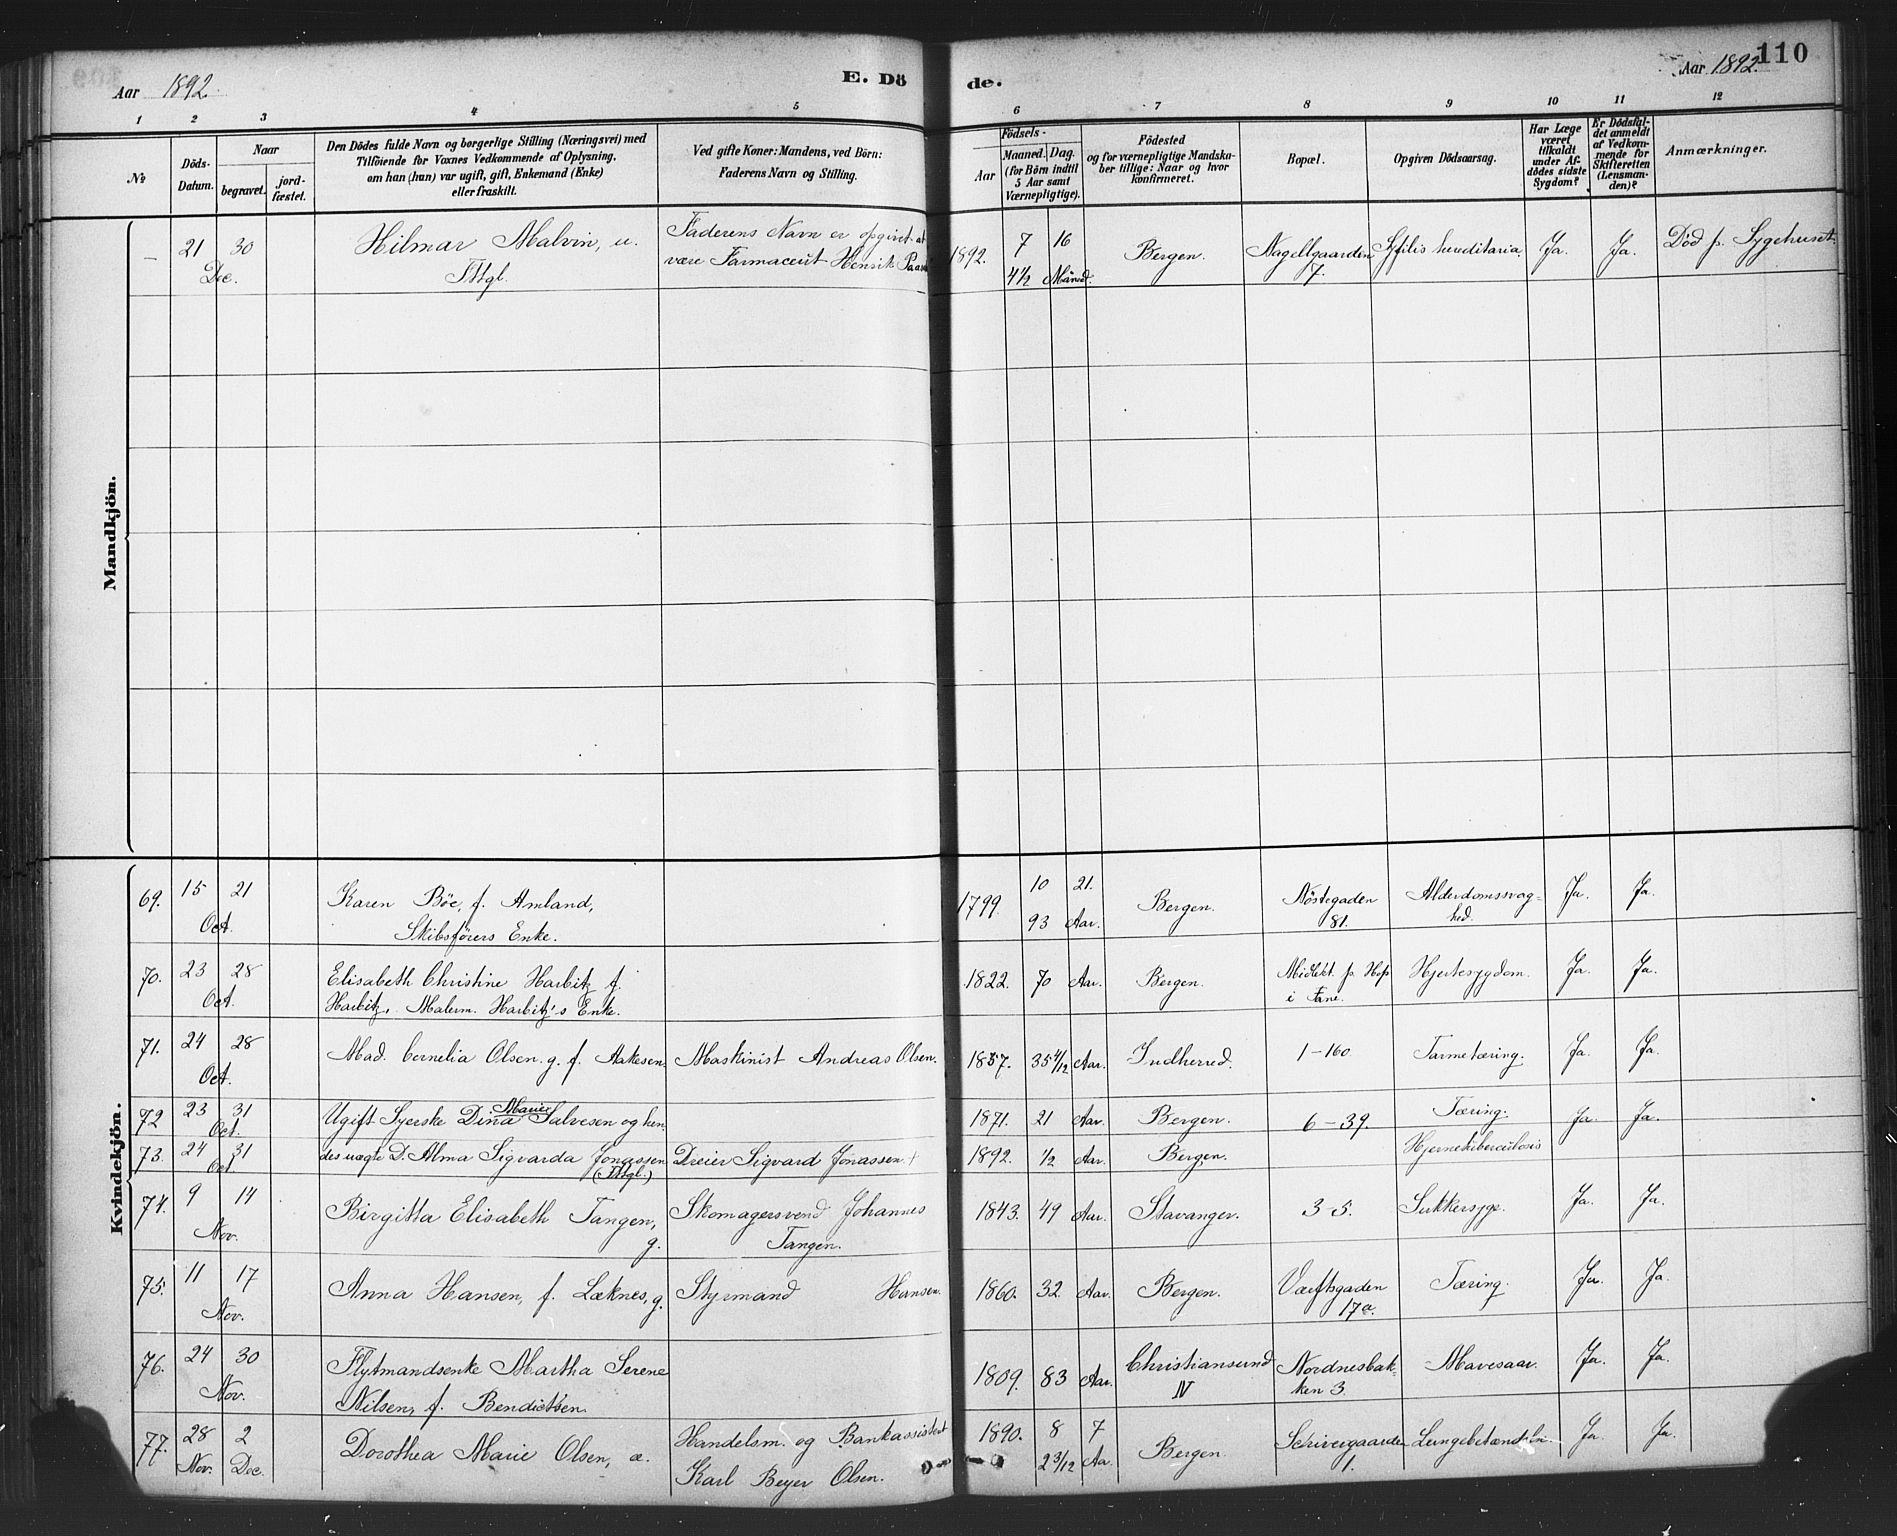 Aar 1892.
E. Dö
de.
Aar 1892.
110
1 2 3 4 5 6 7 8 9 10 11 12
№
Döds-
Datum.
Naar
begravet.
jord-
fæstet.
Den Dödes fulde Navn og borgerlige Stilling (Næringsvei) med
Tilföiende for Voxnes Vedkommende af Oplysning,
om han (hun) var ugift, gift, Enkemand (Enke)
eller fraskilt.
Ved gifte Koner: Mandens, ved Börn:
Faderens Navn og Stilling.
Födsels-
Aar
Maaned. Dag.
(for Börn indtil
5 Aar samt
Værnepligtige).
Födested
og for værnepligtige Mandska-
ber tillige: Naar og hvor
konfirmeret.
Bopæl.
Opgiven Dödsaarsag.
Har Læge
været
tilkaldt
under Af-
dödes sidste
Sygdom?
Er Dödsfal-
det anmeldt
af Vedkom-
mende for
Skifteretten
(Lensman-
den)?
Anmærkninger.
Mandkjön.
– 21 30 Hilmar Malvin, u. Faderens Navn er opgivet at 1892. 7 16 Bergen. Nagellgaarden Syfilis hereditaria. Ja. Ja. Död p. Sygehuset.
Dec. Ttlgl. være Farmaceut Henrik 4½ Måned. 7.
Kvindekjön.
69. 15 21 Karen Böe, f. Amland, 1799. 10 21. Bergen. Nöstegaden Alderdomssvag- Ja. Ja.
Oct. Skibsförers Enke. 93 Aar. 81. hed.
70. 23 28 Elisabeth Christine Harbitz f. 1822. 70 Aar. Bergen. Midlert. p. Hop Hjertesygdom. Ja. Ja.
Oct. Harbitz, Malerm. Harbitz's Enke. i Fane.
71. 24 28 Mad. Cornelia Olsen. g. f. Aakesen. Maskinist Andreas Olsen. 1857. 35 4/12 Aar. Indherred. 1-160. Tarmetæring. Ja. Ja.
Oct.
72 23 31 Ugift Syerske Dina Marie Salvesen og hen- 1871. 21 Aar. Bergen. 6-39. Tæring. Ja. Ja.
Oct.
73. 24 31 des uægte D. Alma Sigvarda Jonassen Dreier Sigvard Jonassen 1892. ½ Aar. Bergen. Hjernetuberculosis
Oct (Ttlgl.)
74. 9 14 Birgitta Elisabeth Tangen, Skomagersvend Johannes 1843. 49 Aar. Stavanger. 3-5. Sukkersyge. Ja. Ja.
Nov. g. Tangen.
75. 11 17 Anna Hansen, f. Læknes, g. Styrmand Hansen. 1860. 32 Aar. Bergen. Værftsgaden Tæring. Ja. Ja.
Nov. 17a.
76. 24 30 Flytmandsenke Martha Serene 1809. 83 Aar. Christiansund Nordnesbak- Mavesaar. Ja. Ja.
Nov. Nilsen, f. Bendictsen. N ken 3.
77. 28 2 Dorothea Marie Olsen, æ. Handelsm. og Bankassistent 1890. 8 7 Bergen. Scrivergaarden Lungebetændelse. Ja. Ja.
Nov. Dec. Karl Beyer Olsen. 2 3/12 Aar. 1.